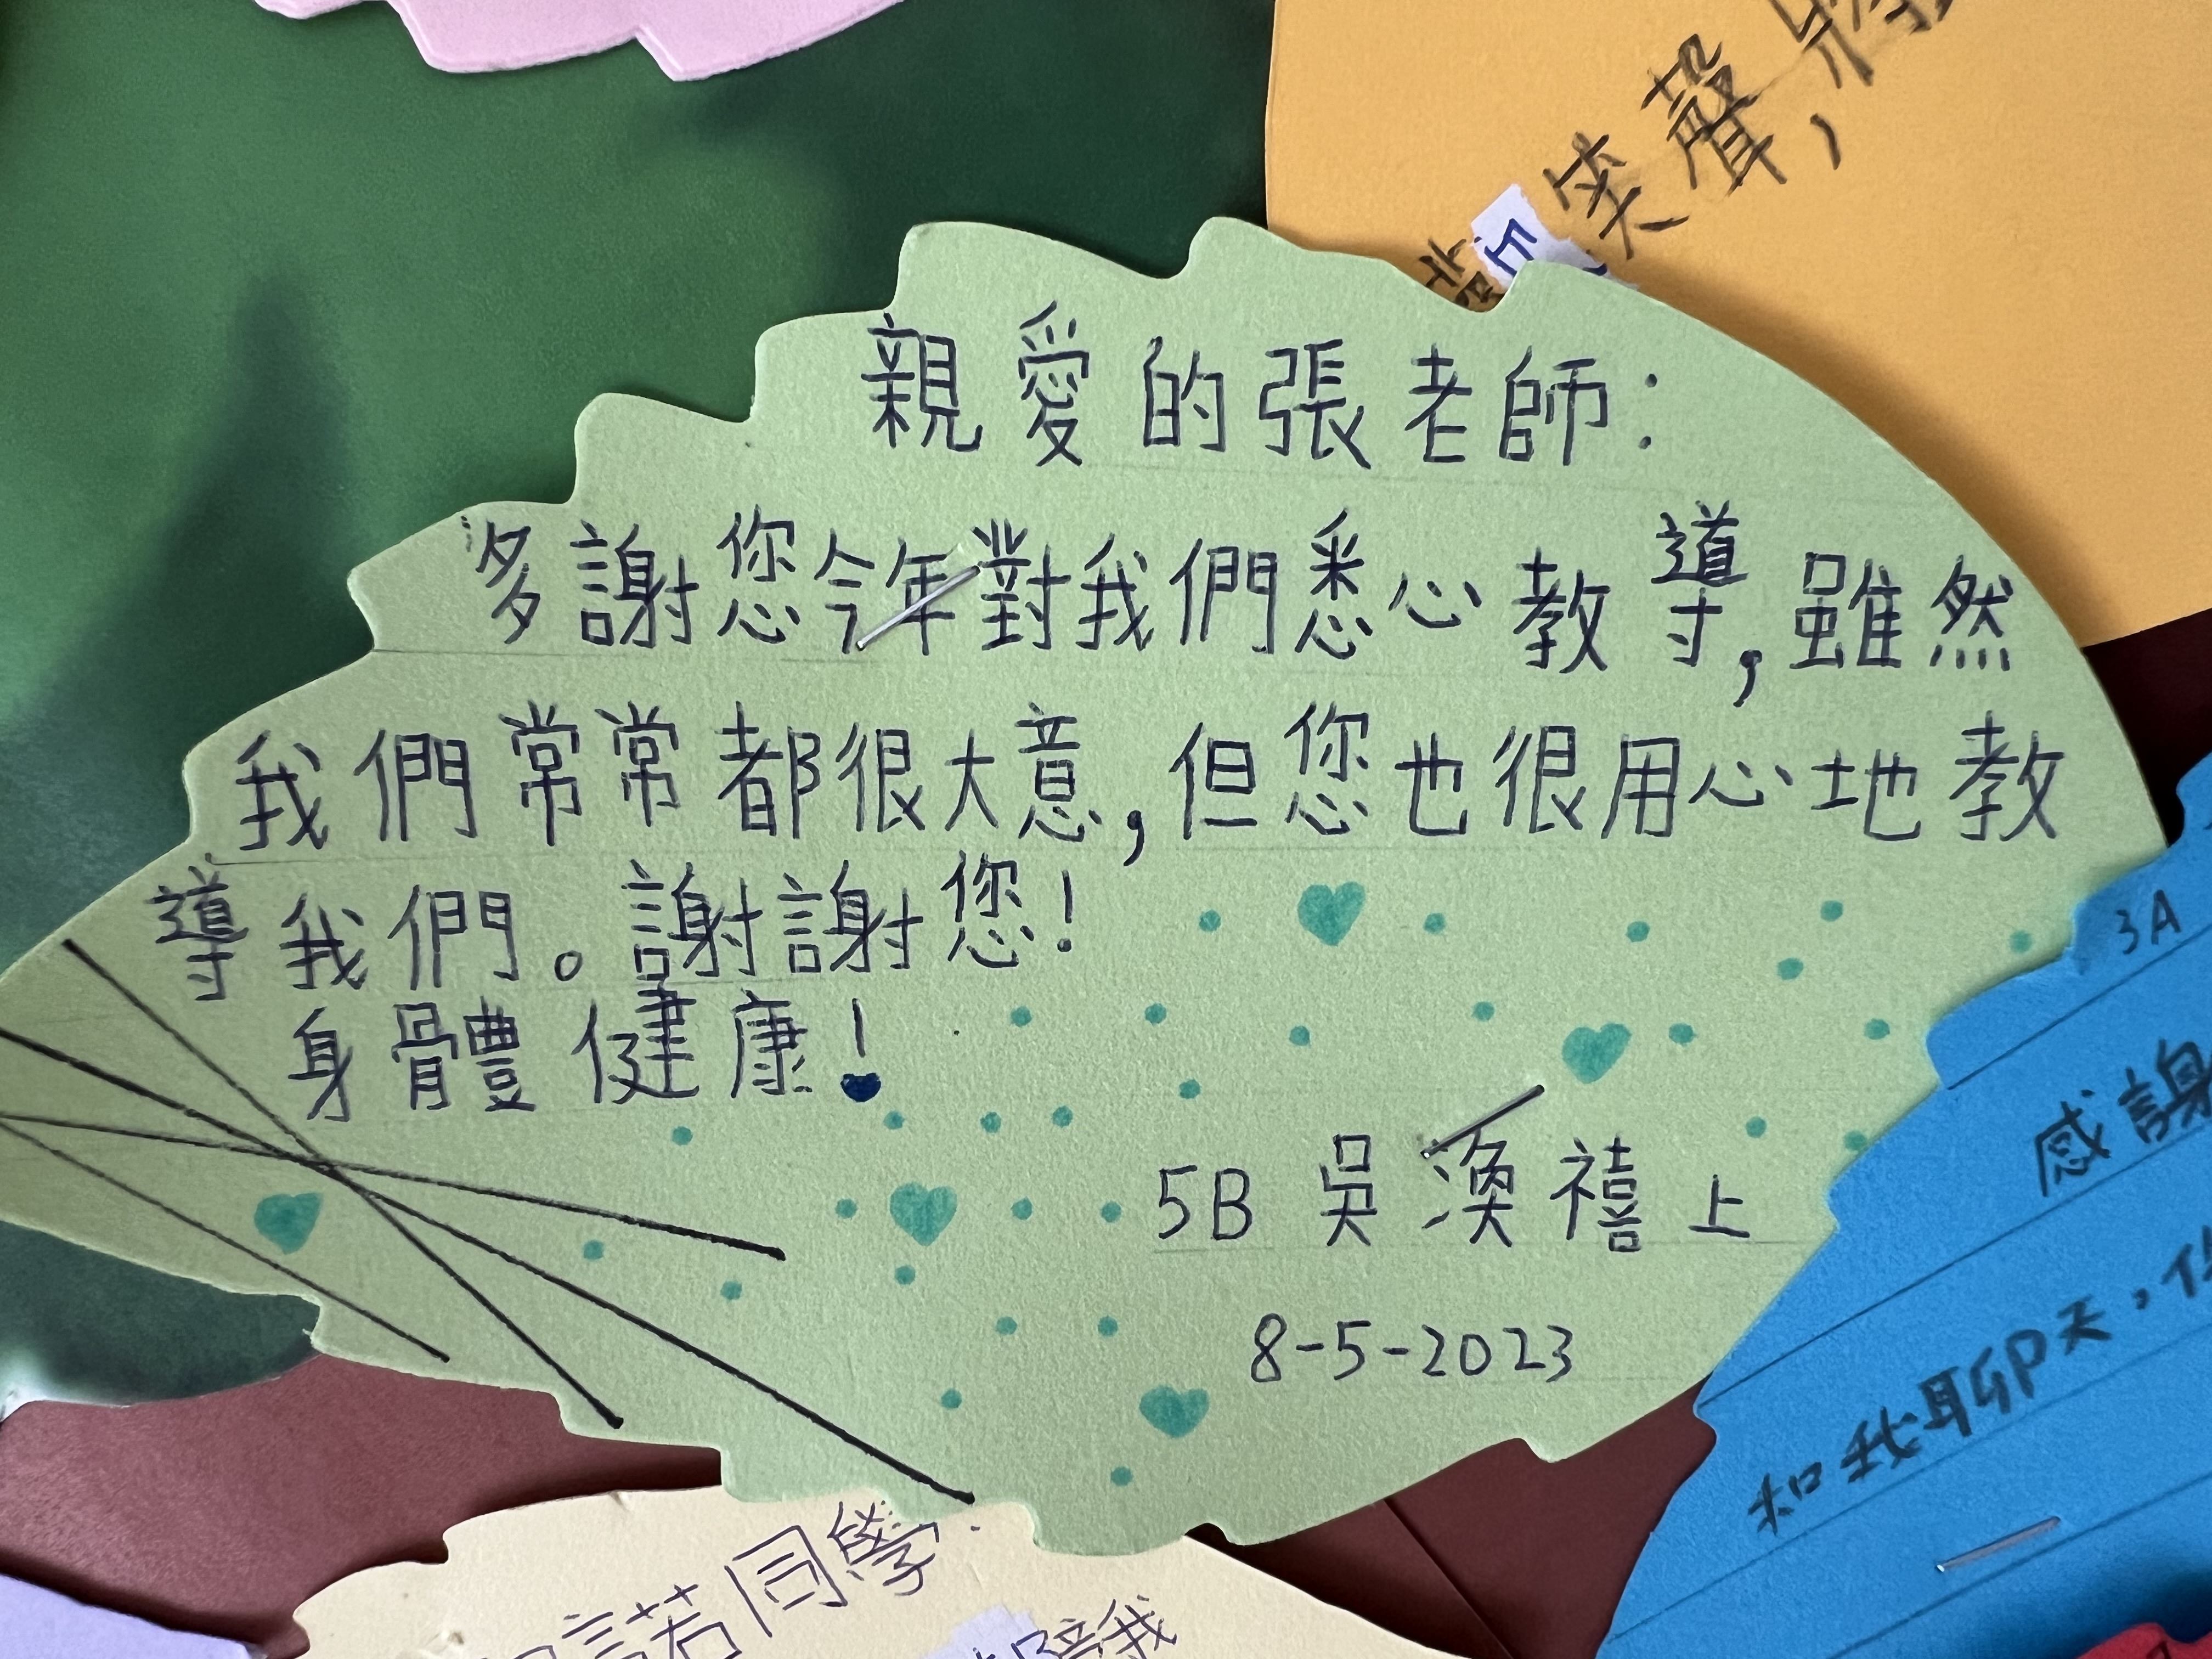 笑聲，將
親愛的張老師：
多謝您今年對我們悉心教導，雖然
我們常常都很大意，但您也很用心地教
導我們。謝謝您！
身體健康！
5B 吳渙禧上
8-5-2023
3A
感謝
和我聊天，
諾同學：
陪我